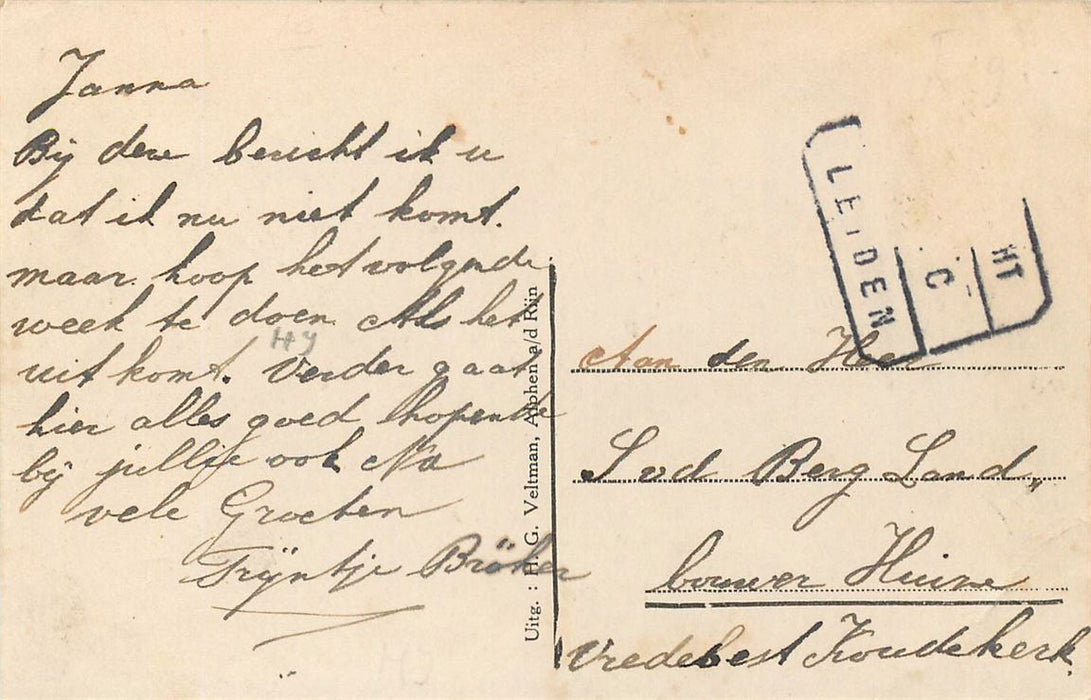 Janna
Bij deze bericht ik u
dat ik nu niet komt.
maar hoop het volgende
week te doen Als het
uit komt. Verder gaat
hier alles goed hopende
bij jullie ook Na
vele Groeten
Trijntje Bröker
Uitg. : H. G. Veltman, Alphen a/d Rijn
LEIDEN
C
HT
Aan den Heer
S vd Berg Land„
bouwer Huize
Vredebest Koudekerk.